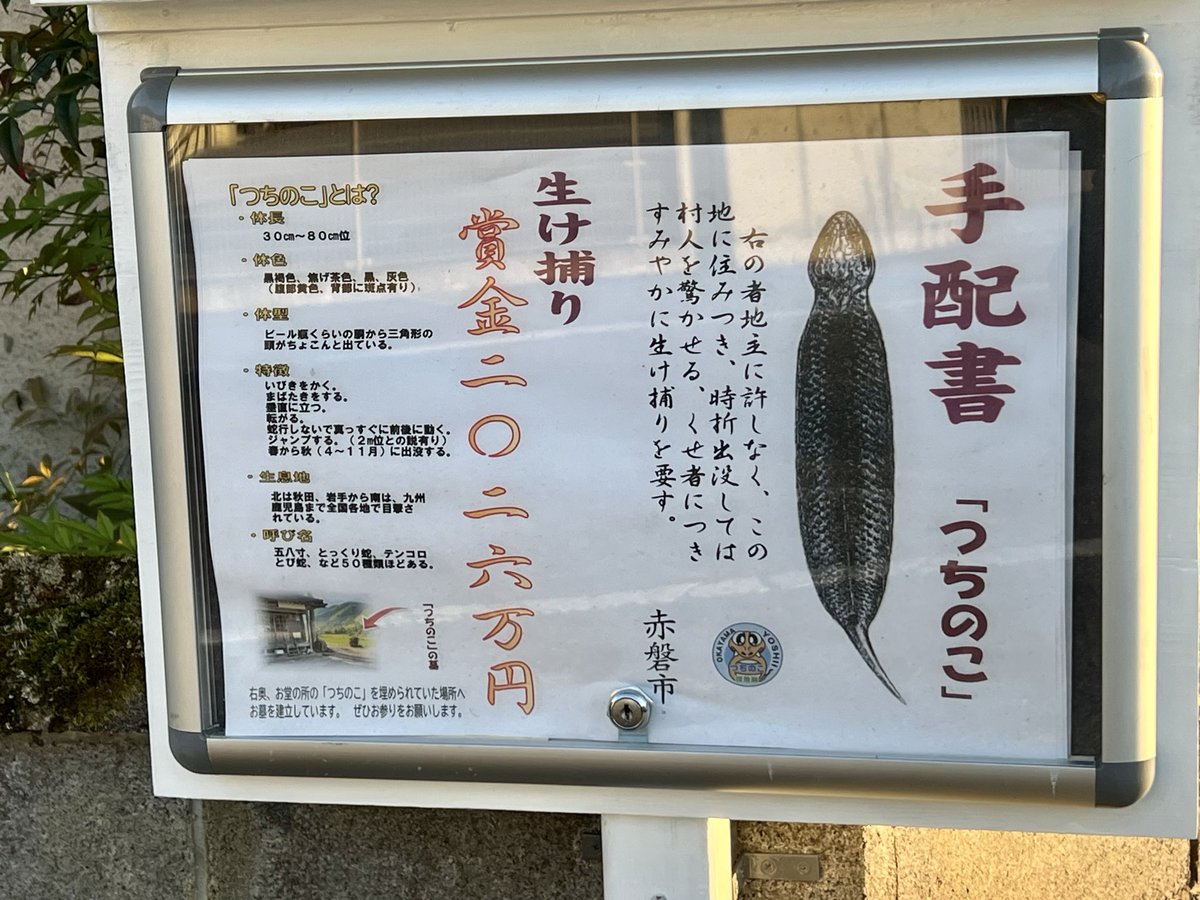 手配書 「つちのこ」
右の者地主に許しなく、この
地に住みつき、時折出没しては
村人を驚かせる、くせ者につき
すみやかに生け捕りを要す。
赤磐市
OKAYAMA YOSHII
つちのこ
生け捕り
賞金二〇二六万円
「つちのこ」とは?
・体長
30㎝～80㎝位
・体色
黒褐色、焦げ茶色、黒、灰色
(腹部黄色、背部に斑点有り)
・体型
ビール瓶くらいの胴から三角形の
頭がちょこんと出ている。
・特徴
いびきをかく。
まばたきをする。
垂直に立つ。
転がる。
蛇行しないで真っすぐに前後に動く。
ジャンプする。(2m位との説有り)
春から秋(4～11月)に出没する。
・生息地
北は秋田、岩手から南は、九州
鹿児島まで全国各地で目撃さ
れている。
・呼び名
五八寸、とっくり蛇、テンコロ
とび蛇、など50種類ほどある。
「つちのこの墓
右奥、お堂の所の「つちのこ」を埋められていた場所へ
お墓を建立しています。 ぜひお参りをお願いします。